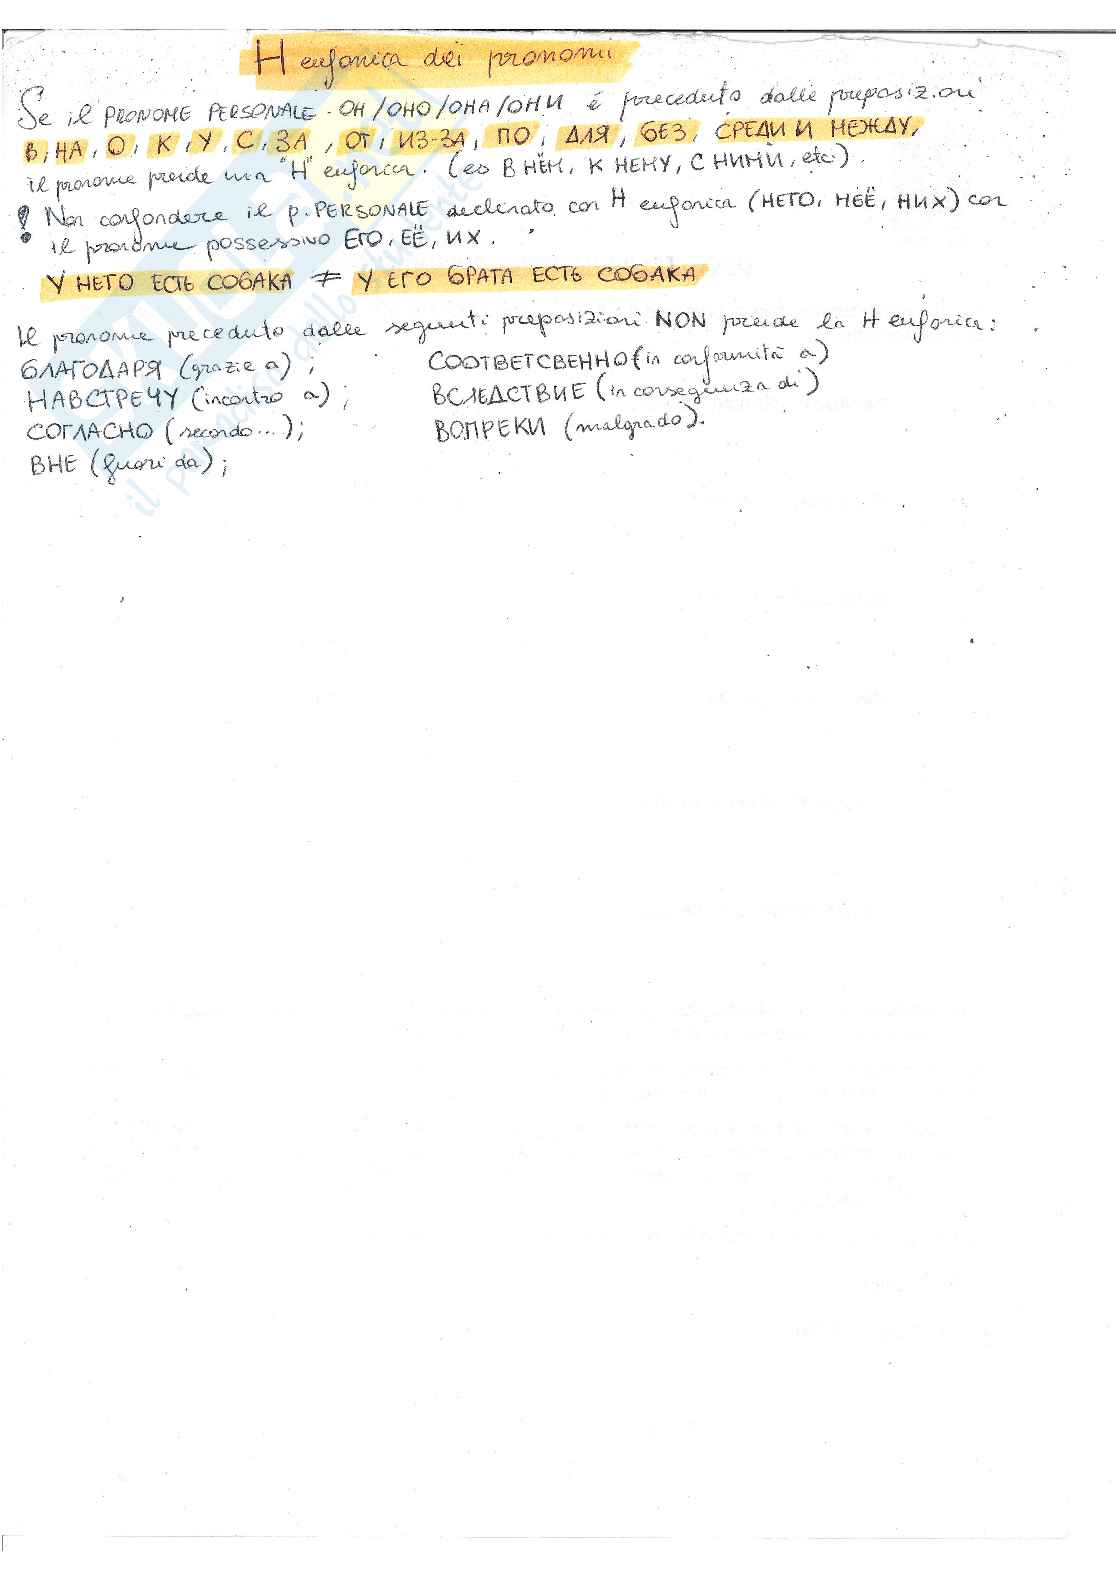 H eufonica dei pronomi
Se il PRONOME PERSONALE ОН/ОНО/ОНА/ОНИ è preceduto dalle preposizioni
В, НА, О, К, У, С, ЗА, ОТ, ИЗ-ЗА, ПО, ДЛЯ, БЕЗ, СРЕДИ И МЕЖДУ,
il pronome prende una "Н" eufonica. (es В НЁМ, К НЕМУ, С НИМИ, etc.).
! Non confondere il p. PERSONALE declinato con Н eufonica (НЕГО, НЕЁ, НИХ) con
il pronome possessivo ЕГО, ЕЁ, ИХ.
У НЕГО ЕСТЬ СОБАКА ≠ У ЕГО БРАТА ЕСТЬ СОБАКА
Il pronome preceduto dalle seguenti preposizioni NON prende la Н eufonica:
БЛАГОДАРЯ (grazie a); СООТВЕТСВЕННО (in conformità a)
НАВСТРЕЧУ (incontro a); ВСЛЕДСТВИЕ (in conseguenza di)
СОГЛАСНО (secondo...); ВОПРЕКИ (malgrado).
ВНЕ (fuori da);